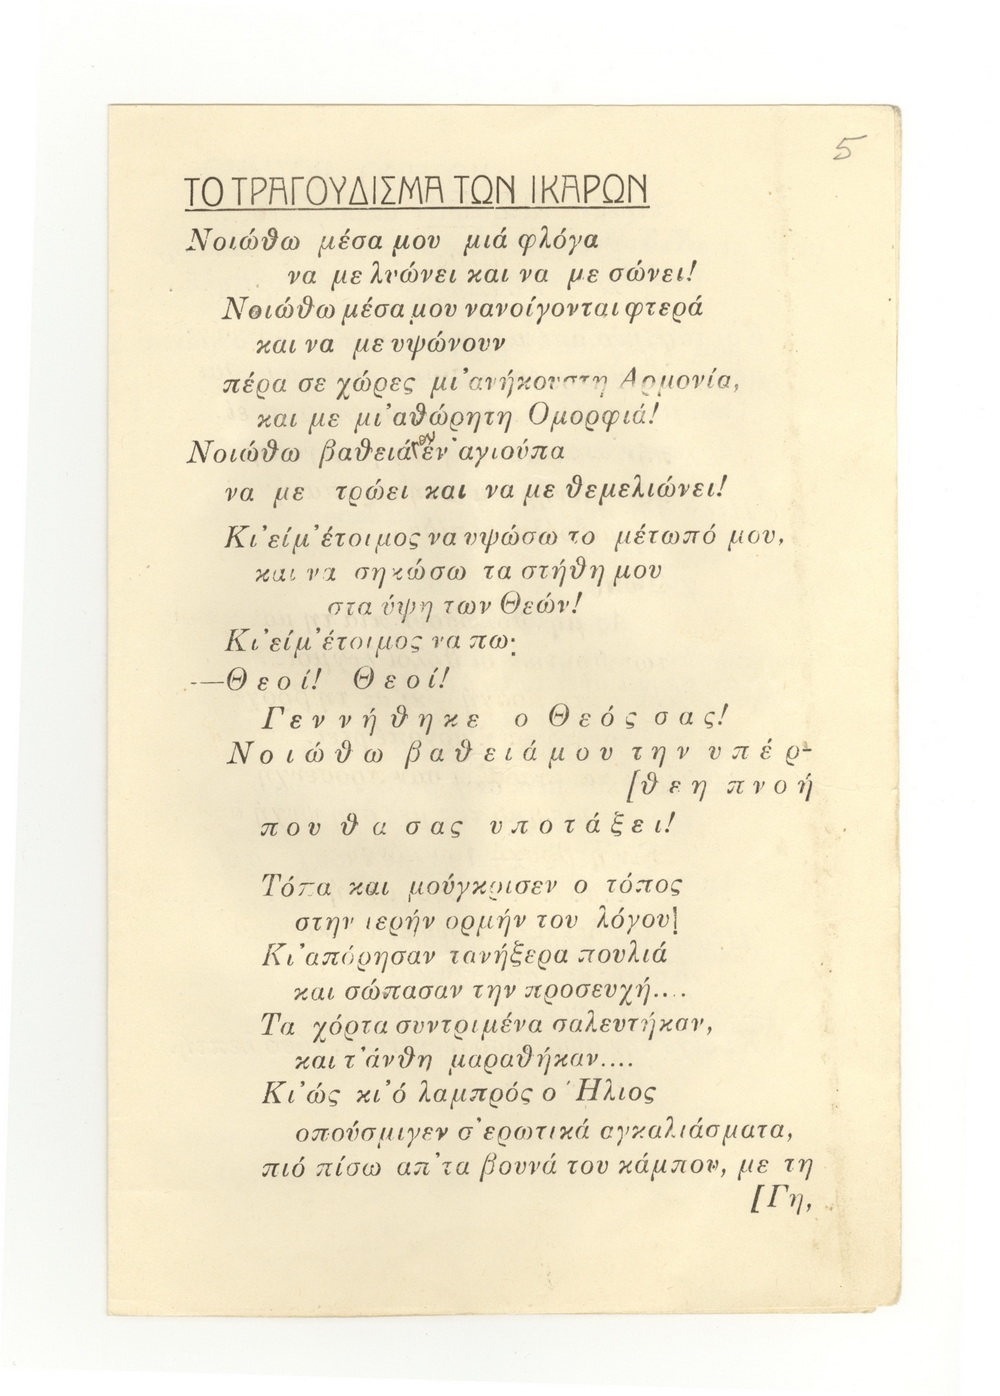 5
ΤΟ ΤΡΑΓΟΥΔΙΣΜΑ ΤΩΝ ΙΚΑΡΩΝ
Νοιώθω μέσα μου μιά φλόγα
να με λυώνει και να με σώνει!
Νοιώθω μέσα μου νανοίγονται φτερά
και να με υψώνουν
πέρα σε χώρες μι'ανήκουστη Αρμονία,
και με μι'αθώρητη Ομορφιά!
Νοιώθω βαθειά μου έν'αγιούπα
να με τρώει και να με θεμελιώνει!
Κι'είμ'έτοιμος να υψώσω το μέτωπό μου,
και να σηκώσω τα στήθη μου
στα ύψη των Θεών!
Κι'είμ'έτοιμος να πω:
—Θεοί! Θεοί!
Γεννήθηκε ο Θεός σας!
Νοιώθω βαθειά μου την υπέρ-
[θεη πνοή
που θα σας υποτάξει!
Τόπα και μούγκρισεν ο τόπος
στην ιερήν ορμήν του λόγου!
Κι'απόρησαν τανήξερα πουλιά
και σώπασαν την προσευχή....
Τα χόρτα συντριμένα σαλευτήκαν,
και τ'άνθη μαραθήκαν....
Κι'ώς κι'ό λαμπρός ο Ήλιος
οπούσμιγεν σ'ερωτικά αγκαλιάσματα,
πιό πίσω απ'τα βουνά του κάμπου, με τη
[Γη,